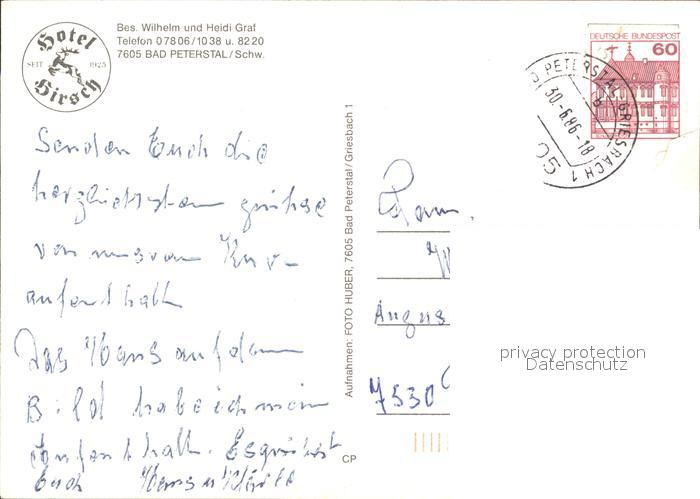 Hotel
SEIT 1925
Hirsch
Bes. Wilhelm und Heidi Graf
Telefon 07806/1038 u. 8220
7605 BAD PETERSTAL/Schw.
DEUTSCHE BUNDESPOST
60
BAD PETERSTAL-GRIESBACH 1
b
30.-6.86-18
Senden Euch die
herzlichsten Grüße
von unserem Kur-
aufenthalt
Das Haus auf dem
Bild habe ich mein
Aufenthalt. Es grüßt
Euch Hans u.
Aufnahmen: FOTO HUBER, 7605 Bad Peterstal/Griesbach 1
CP
Fam.
Augus
7530
privacy protection
Datenschutz